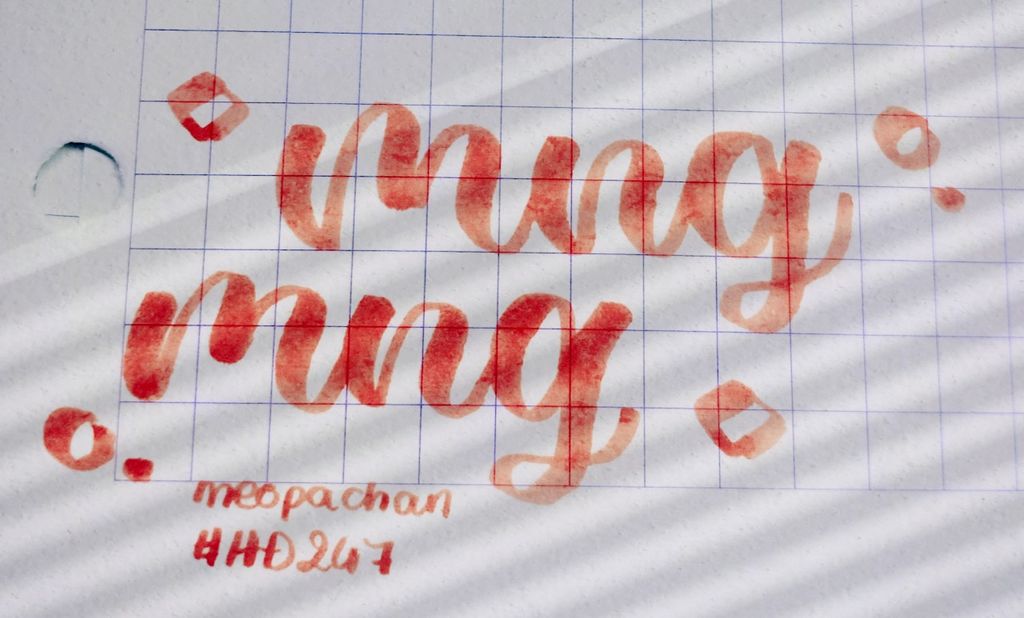 mng
mng
meopachan
#HĐ247